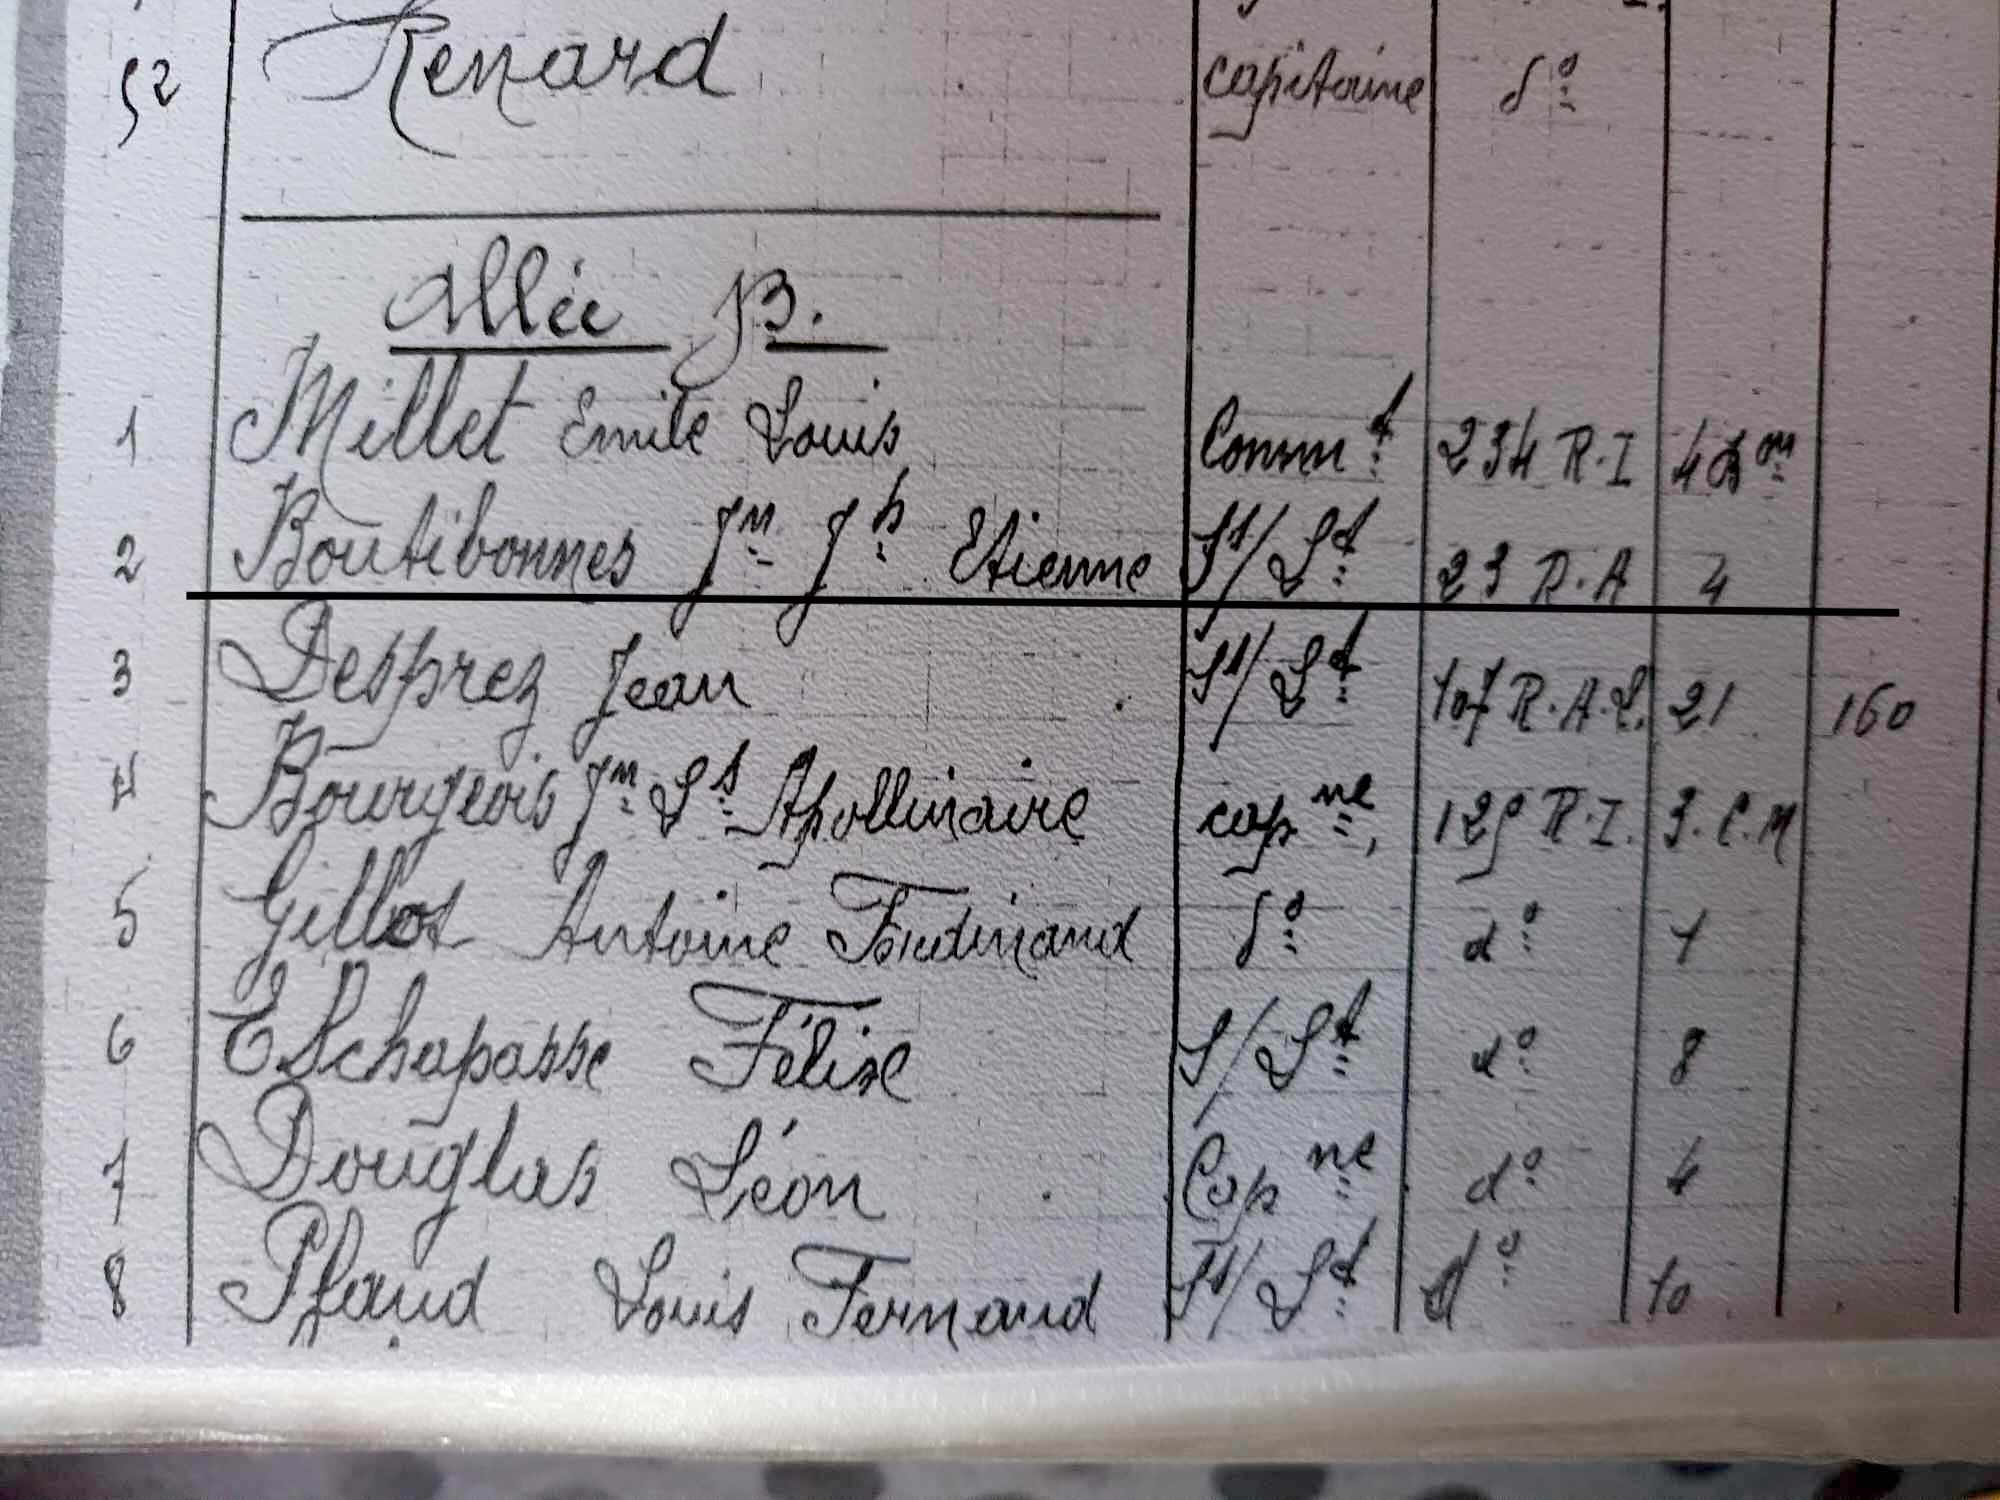 52 Renard capitaine dº
Allée B.
1 Millet Emile Louis Commt 234 R.I 4 Bon
2 Boutibonnes Jn Jh Etienne St/Lt 23 R.A 4
3 Desprez Jean St/Lt 107 R.A.L. 21 160
4 Bourgeois Jn Ls Apollinaire capne, 129 R.I. 3.C.M
5 Gillot Antoine Ferdinand dº dº 1
6 Eschapasse Félix S/Lt dº 8
7 Douglas Léon Capne dº 4
8 Pfaud Louis Fernand St/Lt dº 10